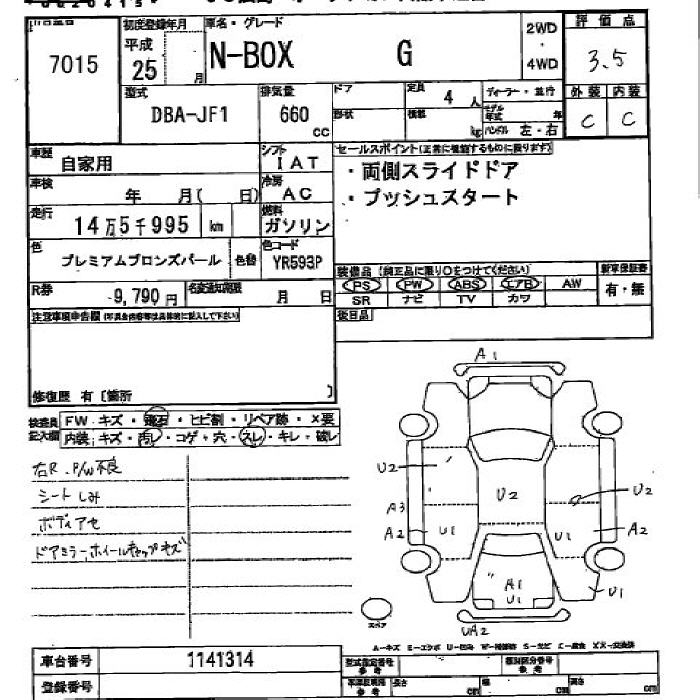 7015
初度登録年月
平成
25 月
車名・グレード
N-BOX G
2WD
・
4WD
評価点
3.5
外装 内装
C C
型式
DBA-JF1
排気量
660
cc
ドア
定員
4 人
ディーラー・並行
形状
積載
kg
モデル年式 年
ハンドル 左・右
車歴
自家用
シフト
IAT
車検
年 月( 日)
冷房
AC
走行
14万5千995 km
燃料
ガソリン
色
プレミアムブロンズパール
色替
色コード
YR593P
R券
9,790 円
名変通知期限
月 日
セールスポイント(正常に機能するものに限ります)
・両側スライドドア
・プッシュスタート
装備品(純正品に限り○をつけてください)
PS PW ABS エアB AW
SR ナビ TV カワ
新車保証書
有・無
後日品
注意事項申告欄(不具合内容等は具体的に記入して下さい)
修復歴 有〔箇所 〕
検査員
記入欄
FW キズ・飛石・ヒビ割・リペア跡・X要
内装:キズ・汚レ・コゲ・穴・スレ・キレ・破レ
右R.P/W不良
シートしみ
ボディアセ
ドアミラー、ホイールキャップキズ
A1
U2
A3
A2
U1
U2
U2
U1
A2
A1
U1
U1
UA2
スペア
車台番号
1141314
登録番号
型式指定番号
参考
類別区分番号
参考
長さ cm
幅 cm
高さ cm